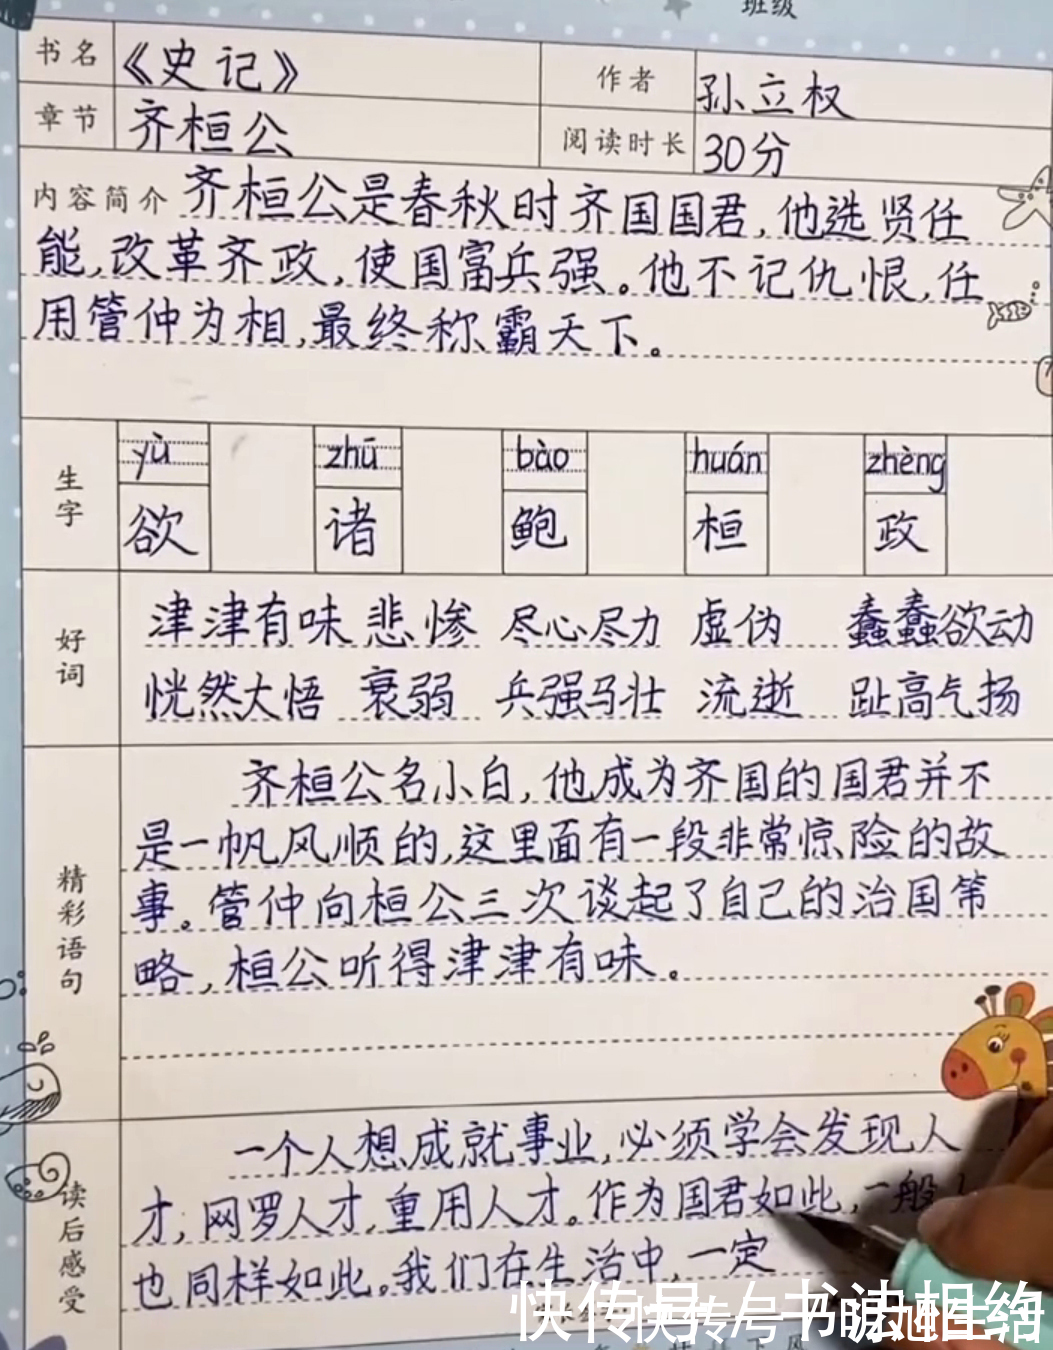 班级
书名 《史记》 作者 孙立权
章节 齐桓公 阅读时长 30分
内容简介 齐桓公是春秋时齐国国君,他选贤任
能,改革齐政,使国富兵强。他不记仇恨,任
用管仲为相,最终称霸天下。
yù zhū bào huán zhèng
生字 欲 诸 鲍 桓 政
好词 津津有味 悲惨 尽心尽力 虚伪 蠢蠢欲动
恍然大悟 衰弱 兵强马壮 流逝 趾高气扬
精彩语句 齐桓公名小白,他成为齐国的国君并不
是一帆风顺的,这里面有一段非常惊险的故
事。管仲向桓公三次谈起了自己的治国策
略,桓公听得津津有味。
读后感受 一个人想成就事业,必须学会发现人
才,网罗人才,重用人才。作为国君如此,一般
也同样如此。我们在生活中,一定
快传号 / 书法相约
快传号